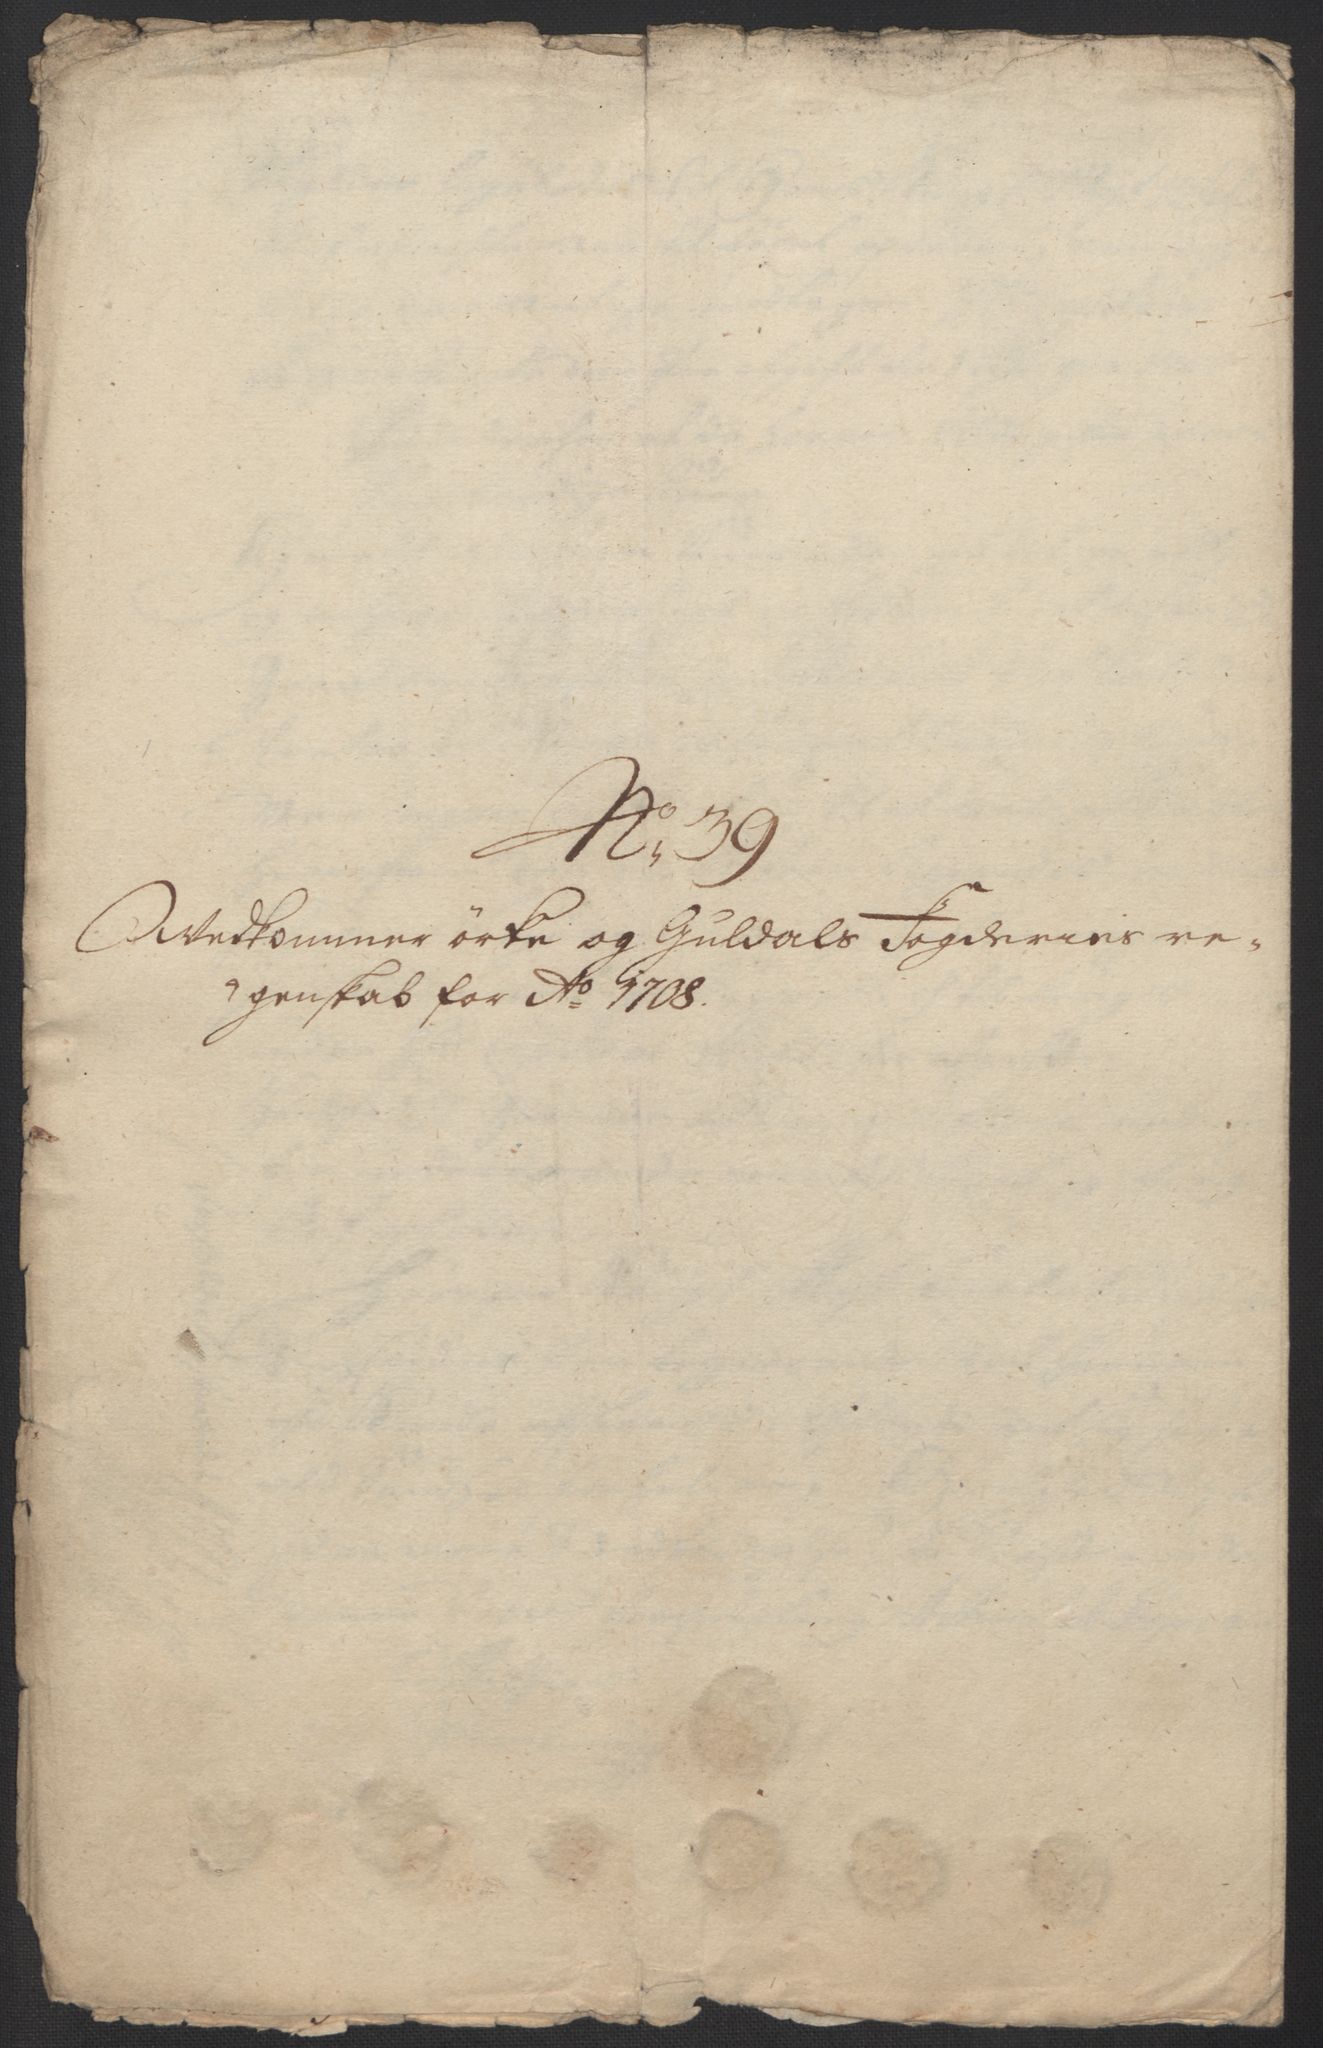 No. 39
Vedkommer örke og Guldals Fogderies re-
genskab for Ao 1708.